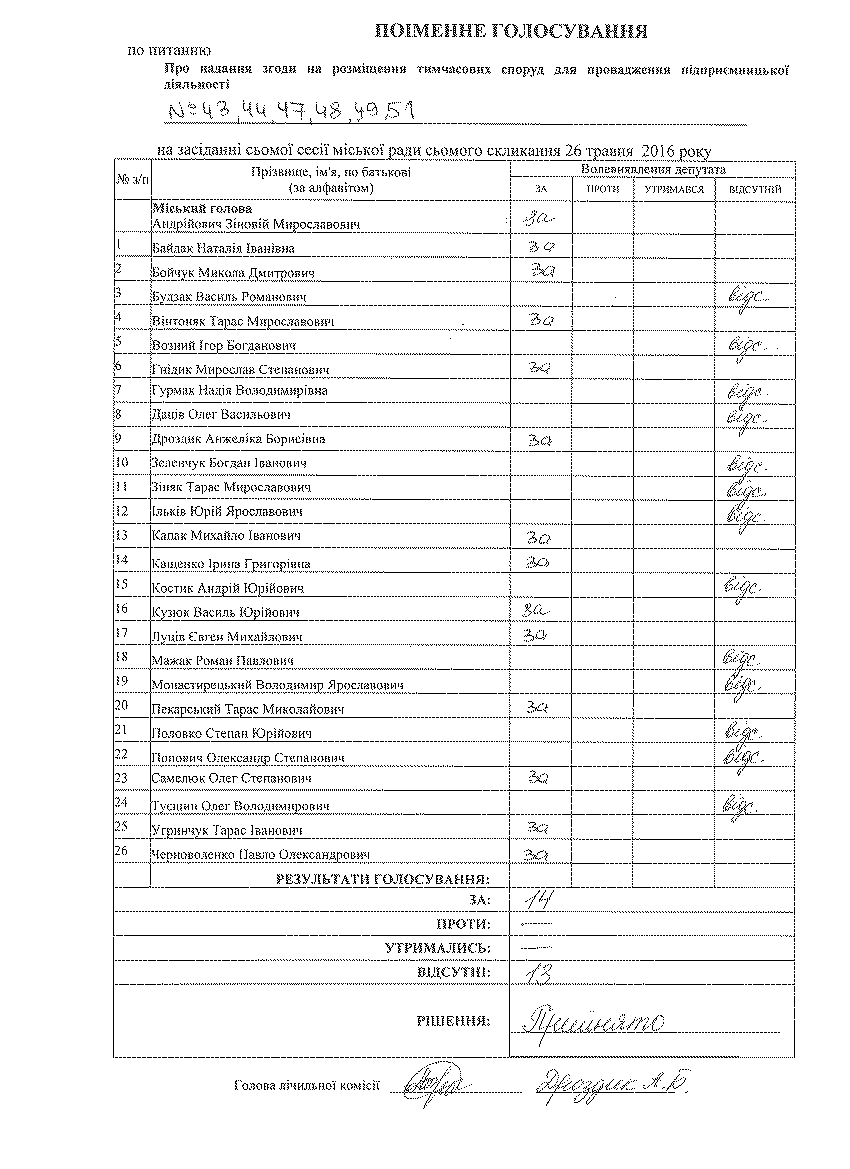 ПОІМЕННЕ ГОЛОСУВАННЯ
по питанню
Про надання згоди на розміщення тимчасових споруд для провадження підприємницької
діяльності
№ 43, 44, 47, 48, 49, 51
на засіданні сьомої сесії міської ради сьомого скликання 26 травня 2016 року
№ з/п Прізвище, ім'я, по батькові (за алфавітом) Волевиявлення депутата
ЗА ПРОТИ УТРИМАВСЯ ВІДСУТНІЙ
Міський голова
Андрійович Зіновій Мирославович за
1 Байдак Наталія Іванівна за
2 Бойчук Микола Дмитрович за
3 Будзак Василь Романович відс.
4 Вінтоняк Тарас Мирославович за
5 Возний Ігор Богданович відс.
6 Гнідик Мирослав Степанович за
7 Гурмак Надія Володимирівна відс.
8 Даців Олег Васильович відс.
9 Дроздик Анжеліка Борисівна за
10 Зеленчук Богдан Іванович відс.
11 Зіняк Тарас Мирославович відс.
12 Ільків Юрій Ярославович відс.
13 Капак Михайло Іванович за
14 Кащенко Ірина Григорівна за
15 Костик Андрій Юрійович відс.
16 Кузюк Василь Юрійович за
17 Луців Євген Михайлович за
18 Мажак Роман Павлович відс.
19 Монастирецький Володимир Ярославович відс.
20 Пекарський Тарас Миколайович за
21 Половко Степан Юрійович відс.
22 Попович Олександр Степанович відс.
23 Самелюк Олег Степанович за
24 Туєшин Олег Володимирович відс.
25 Угринчук Тарас Іванович за
26 Черноволенко Павло Олександрович за
РЕЗУЛЬТАТИ ГОЛОСУВАННЯ:
ЗА: 14
ПРОТИ: —
УТРИМАЛИСЬ: —
ВІДСУТНІ: 13
РІШЕННЯ: Прийнято
Голова лічильної комісії Дроздик А.Б.